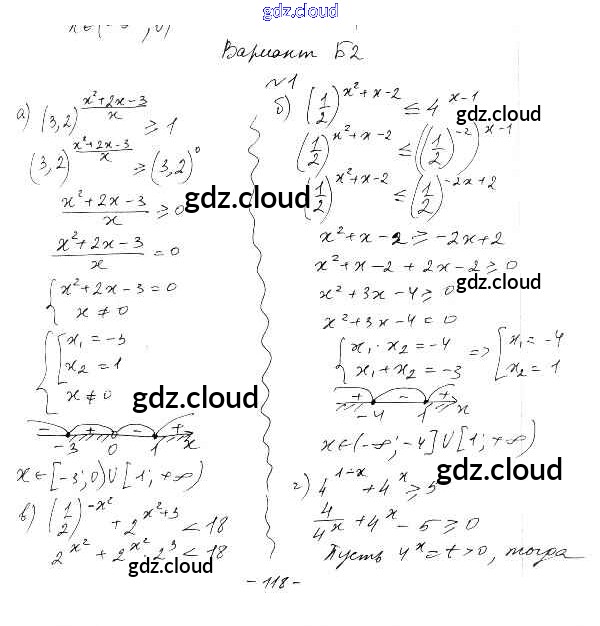 gdz.cloud
Вариант Б2
№1
а) (3,2)^((x²+2x-3)/x) ≥ 1
(3,2)^((x²+2x-3)/x) ≥ (3,2)⁰
(x²+2x-3)/x ≥ 0
(x²+2x-3)/x = 0
{ x²+2x-3=0
x ≠ 0
{ [ x₁ = -3
x₂ = 1
x ≠ 0
- + - +
-3 0 1 x
x∈[-3; 0)∪[1; +∞)
в) (1/2)^(-x²) + 2^(x²+3) < 18
2^(x²) + 2^(x²)·2³ < 18
б) (1/2)^(x²+x-2) ≤ 4^(x-1)
(1/2)^(x²+x-2) ≤ ((1/2)^(-2))^(x-1)
(1/2)^(x²+x-2) ≤ (1/2)^(-2x+2)
x²+x-2 ≥ -2x+2
x²+x-2+2x-2 ≥ 0
x²+3x-4 ≥ 0
x²+3x-4=0
{ x₁·x₂ = -4
x₁+x₂ = -3 => [ x₁ = -4
x₂ = 1
+ - +
-4 1 x
x∈(-∞; -4]∪[1; +∞)
г) 4^(1-x) + 4^x ≥ 5
4/4^x + 4^x - 5 ≥ 0
Пусть 4^x = t > 0, тогда
gdz.cloud
gdz.cloud
gdz.cloud
gdz.cloud
gdz.cloud
gdz.cloud
gdz.cloud
gdz.cloud
- 118 -